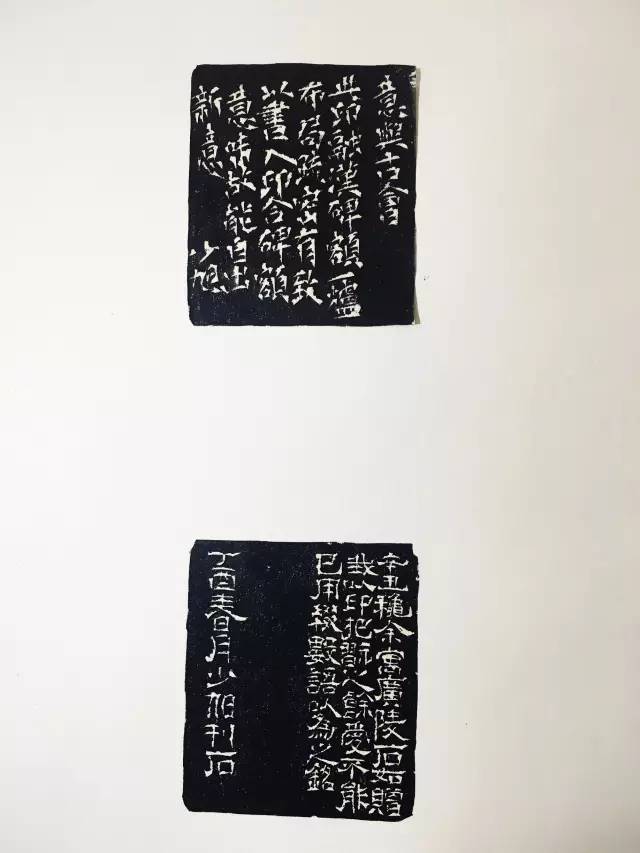 意與古會
此印融漢碑額一爐
布局疏密有致
以書入印含碑額
意味故能自出
新意 少旭
辛丑穐余寓廣陵石如贈
我印把翫之餘愛不能
已用綴數語以為之銘
丁酉春月少刊石